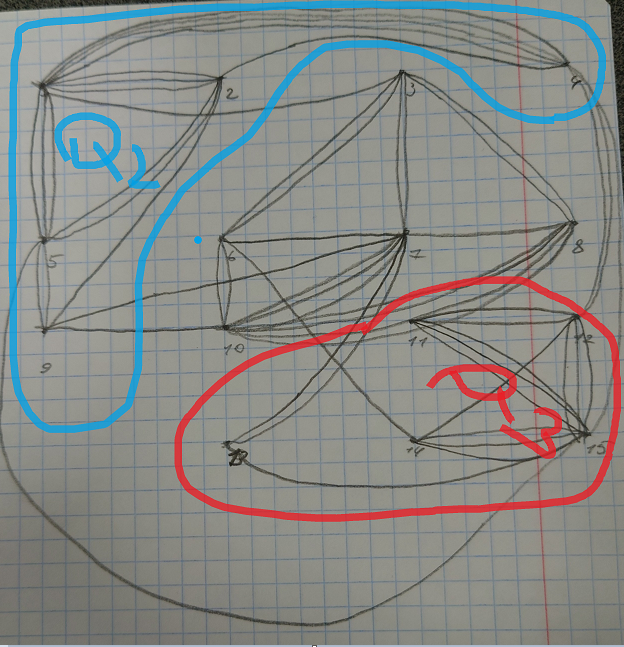 2
3
4
Q2
5
6
7
8
9
10
11
12
Q3
14
15